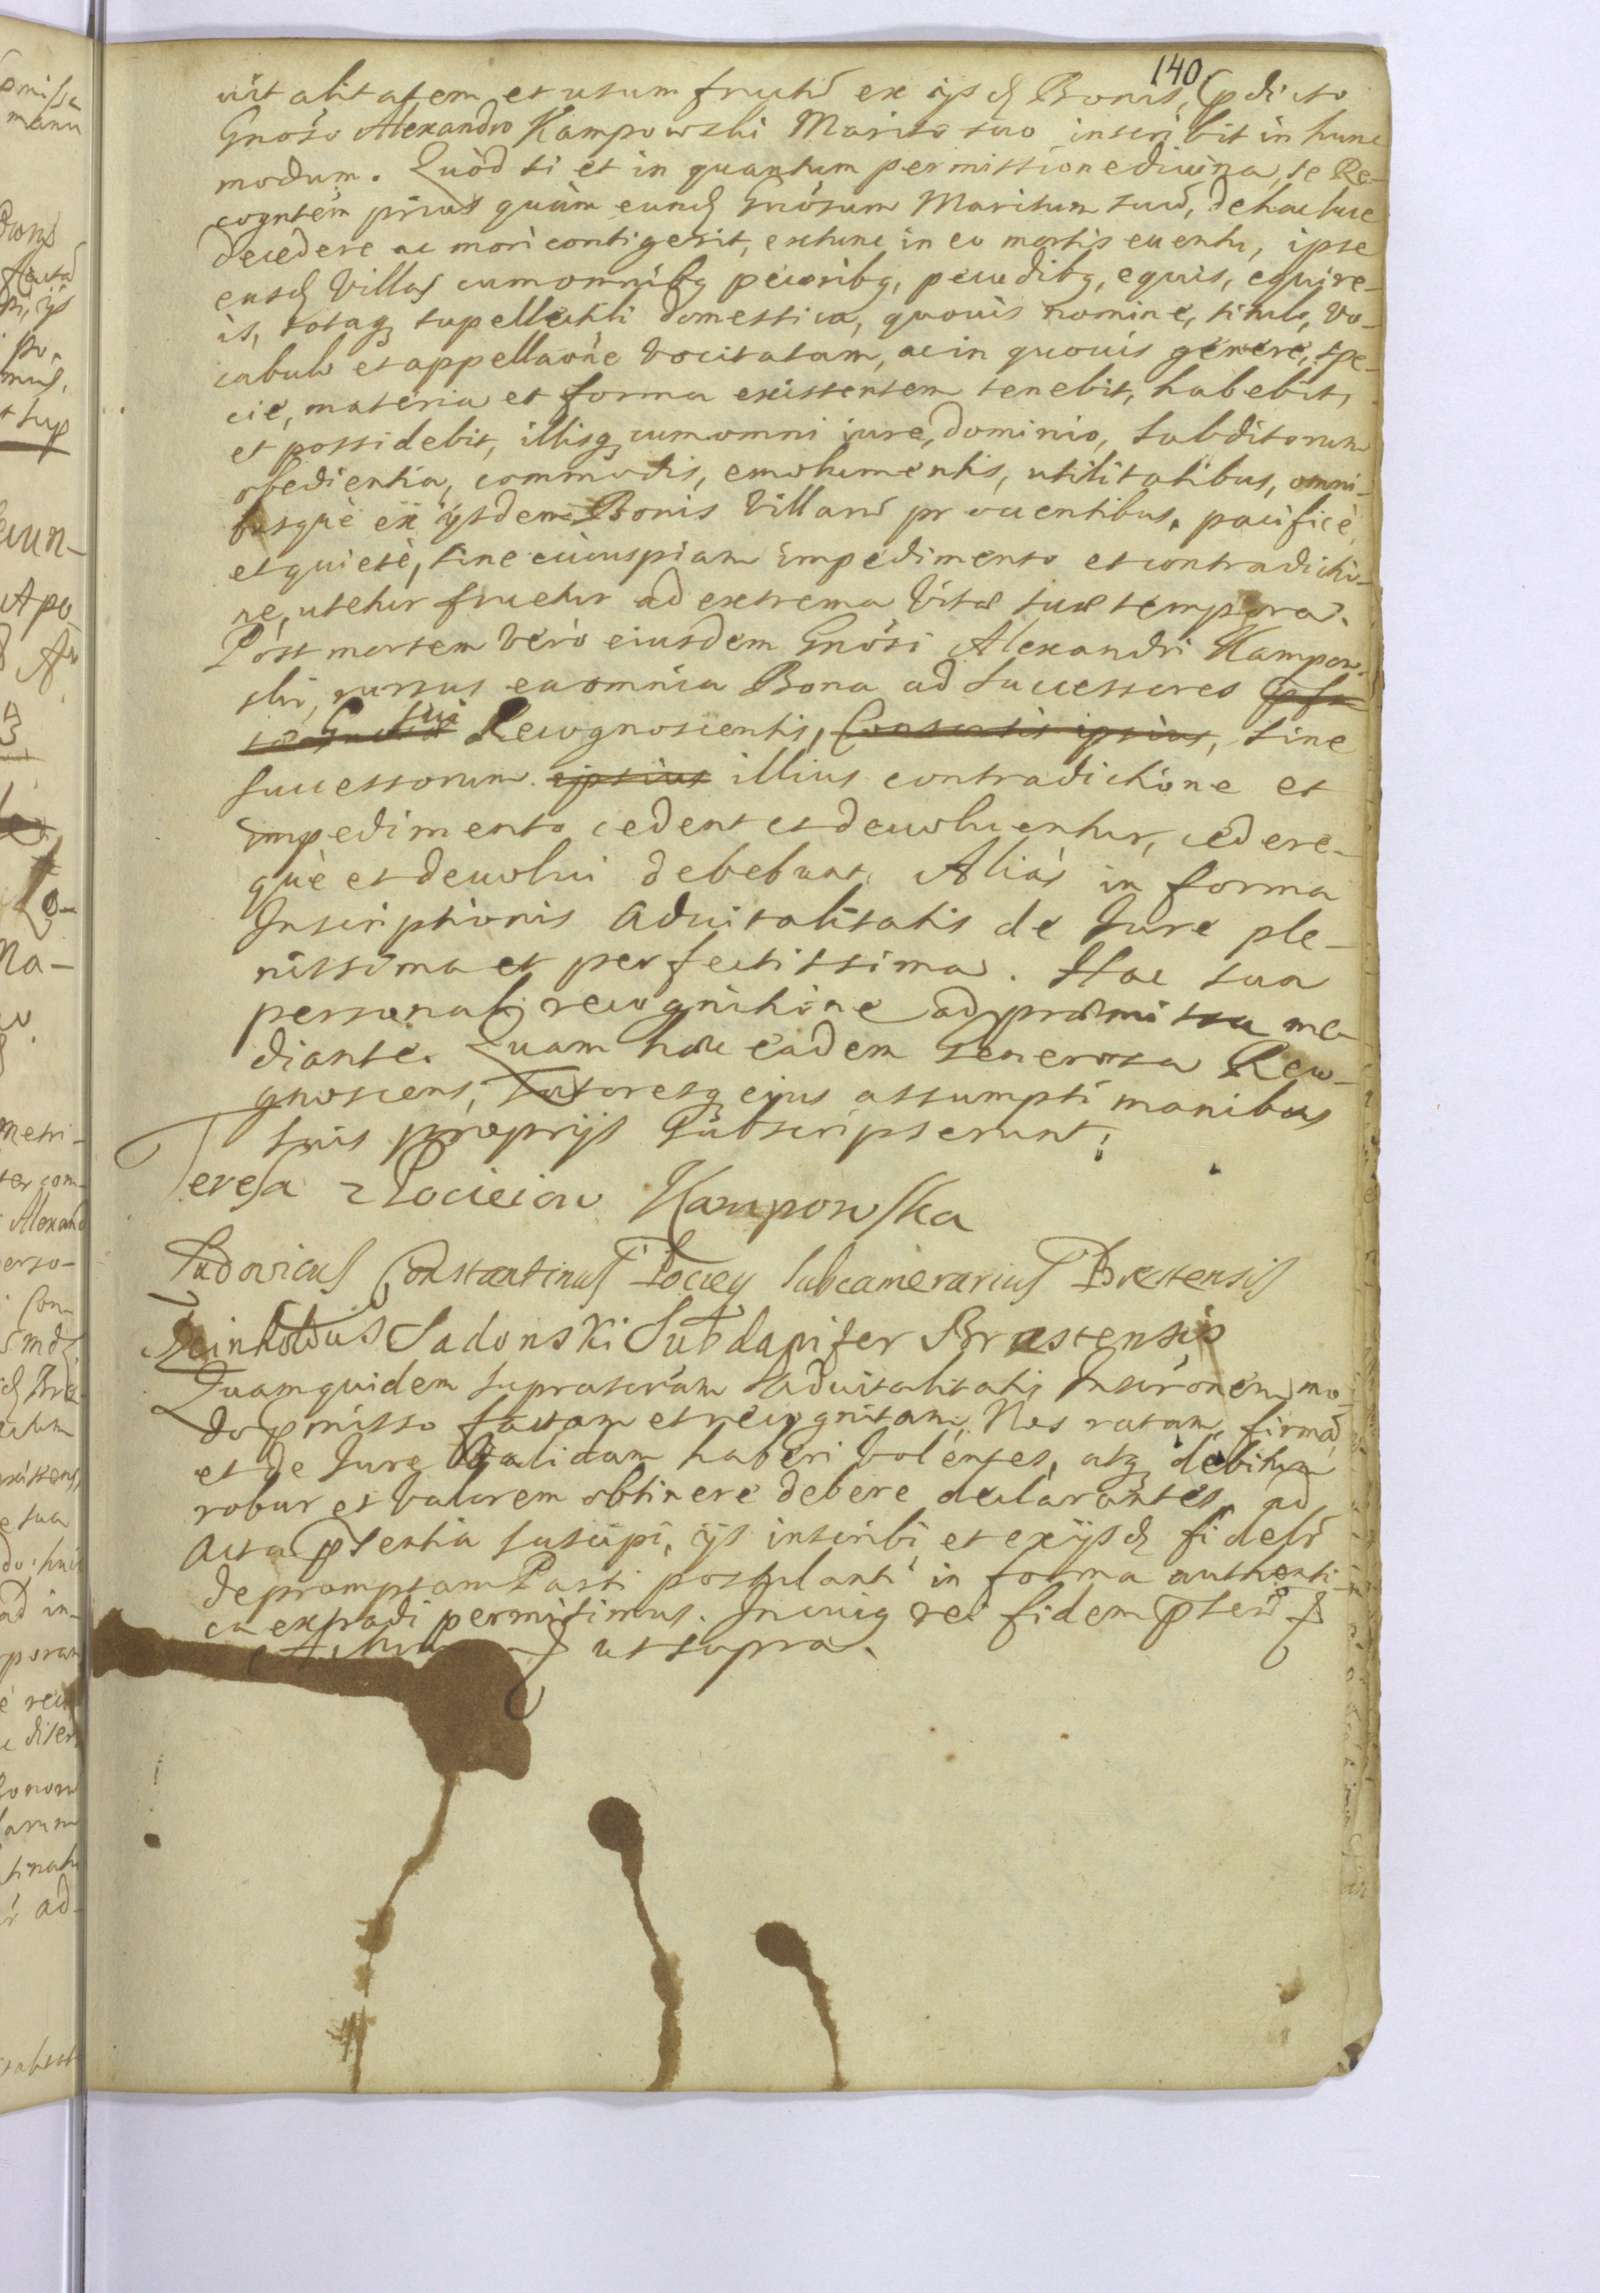 140
uitalitatem et usumfructu ex ijsd Bonis, pdicto
Gnoso Alexandro Kampowski Marito suo inscribit in hunc
modum. Quòd si et in quantum permissione diuina, se Re-
cogntem priùs quàm eund Gnosum Maritum suu, de hac luce
decedere ac mori contigerit, extunc in eo mortis euentu, ipse
easd Villas cum omnibq pecoribq, pecudibq, equis, equire-
is, totaq supellectili domestica, quouis nomine, titulo, vo-
cabulo et appellaone vocitatam, ac in quouis genere, spe-
cie, materia et forma existentem tenebit, habebit,
et possidebit, illisq cum omni iure, dominio, subditorum
obedientia, commodis, emolumentis, utilitatibus, omni-
busquè ex ijsdem Bonis Villaru prouentibus, pacificè
et quietè, sine cuiuspiam impedimento et contradictio-
ne, utetur fruetur ad extrema Vitæ suæ tempora.
Post mortem verò eiusdem Gnosi Alexandri Kampow-
ski, rursus ea omnia Bona ad successores
suæ Recognoscentis, Consortis ipsius, sine
successorum ipsius illius contradictione et
impedimento cedent et deuoluentur, cedere-
què et deuolui debebunt. Aliàs in forma
Inscriptionis Aduitalitatis de Iure ple-
nissima et perfectissima. Hac sua
personali recognitione ad præmissa me-
diante. Quam hæc eadem Generosa Reco-
gnoscens, Tutoresq ejus assumpti manibus
suis proprijs subscripserunt.
Teresa z Pocieiow Kampowska
Ludovicus Constantinus Pociey Subcamerarius Brestensis
Reinholdus Sadowski Subdapifer Brestensis
Quamquidem suprascriptam aduitalitatis Inscronem mo-
do pmisso factam et recognitam, Nos ratam, firma,
et de Iure validam haberi volentes, atq debitum
robur et valorem obtinere debere declarantes, ad
Acta psentia suscipi, ijs inscribi et ex ijsd fideli
depromptam Parti postulanti in forma authenti-
ca extradi permisimus. In cuiq rei fidem pten
ut supra.